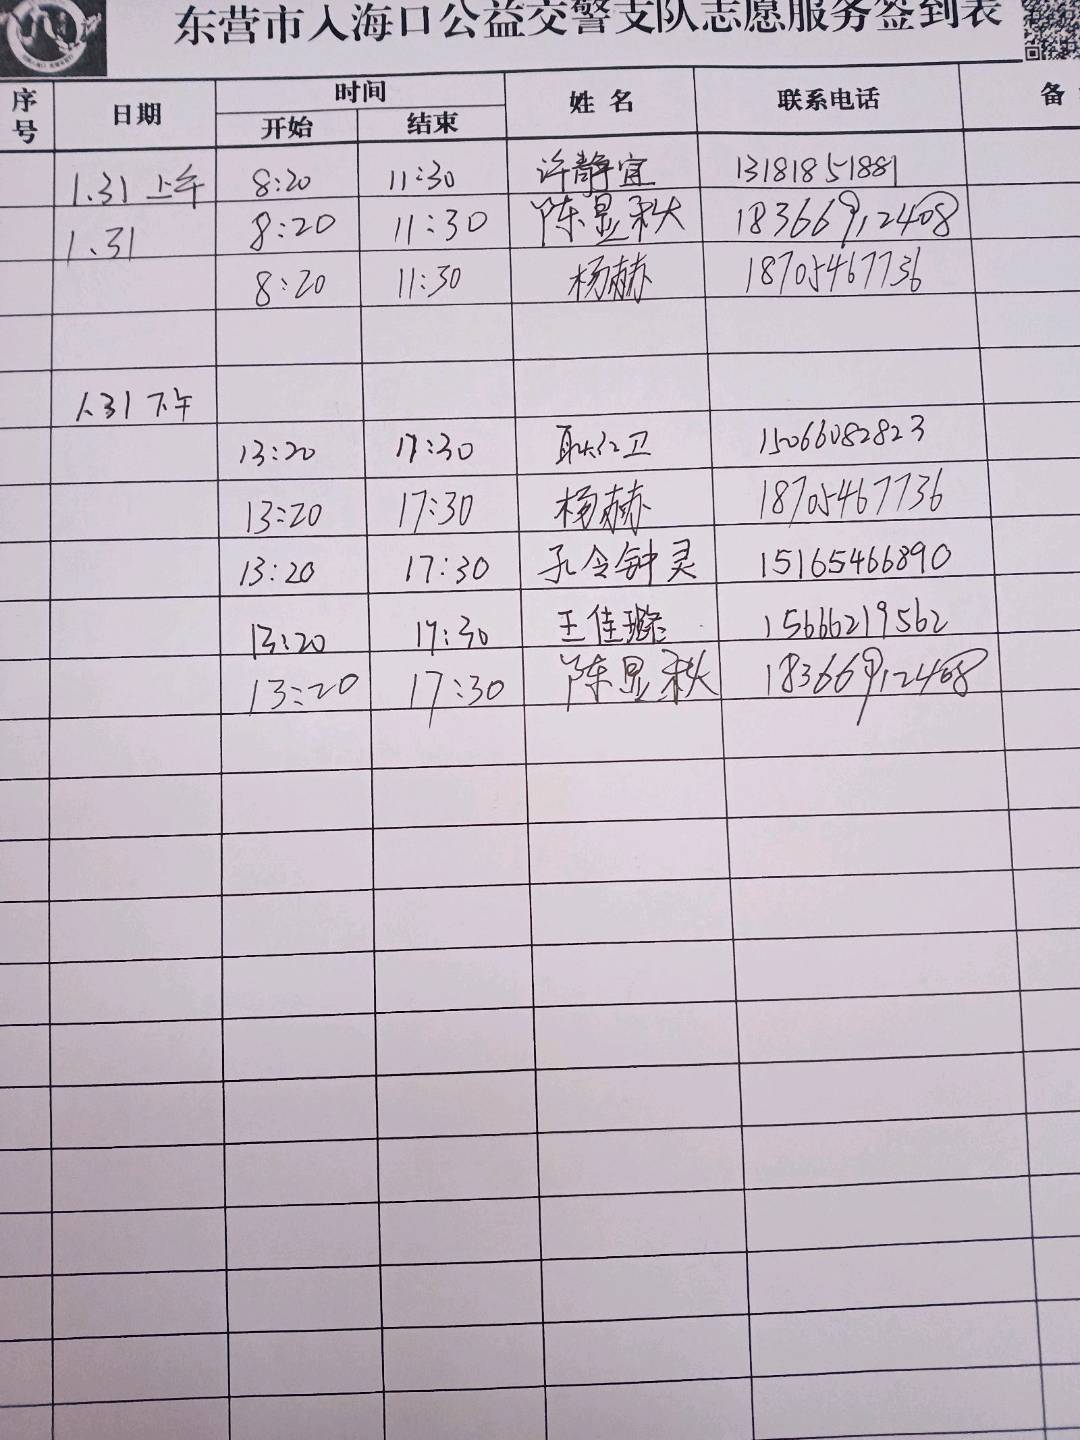 东营市入海口公益交警支队志愿服务签到表
序号 日期 时间 姓名 联系电话 备
开始 结束
1.31 上午 8:20 11:30 许静宜 13181851881
1.31 8:20 11:30 陈显秋 18366912408
8:20 11:30 杨赫 18705467736
1.31 下午
13:20 17:30 耿红卫 15066082823
13:20 17:30 杨赫 18705467736
13:20 17:30 孔令钟灵 15165466890
13:20 17:30 王佳璇 15666219562
13:20 17:30 陈显秋 18366912408